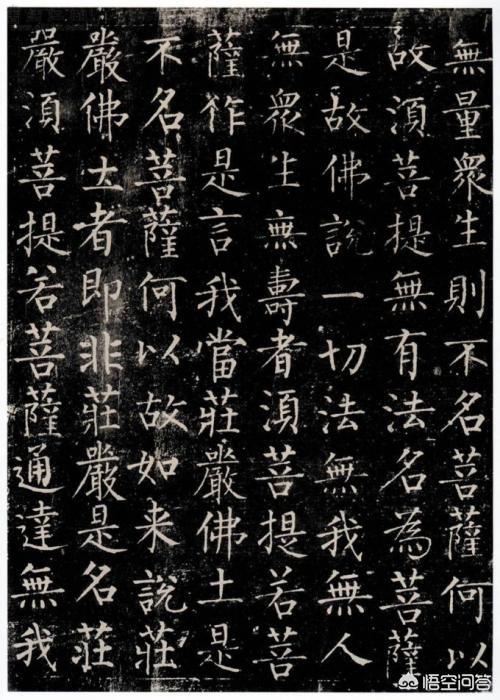 無量衆生則不名菩薩何以
故湏菩提無有法名為菩薩
是故佛說一切法無我無人
無衆生無壽者湏菩提若菩
薩作是言我當莊嚴佛土是
不名菩薩何以故如来說莊
嚴佛土者即非莊嚴是名莊
嚴湏菩提若菩薩通達無我
悟空问答